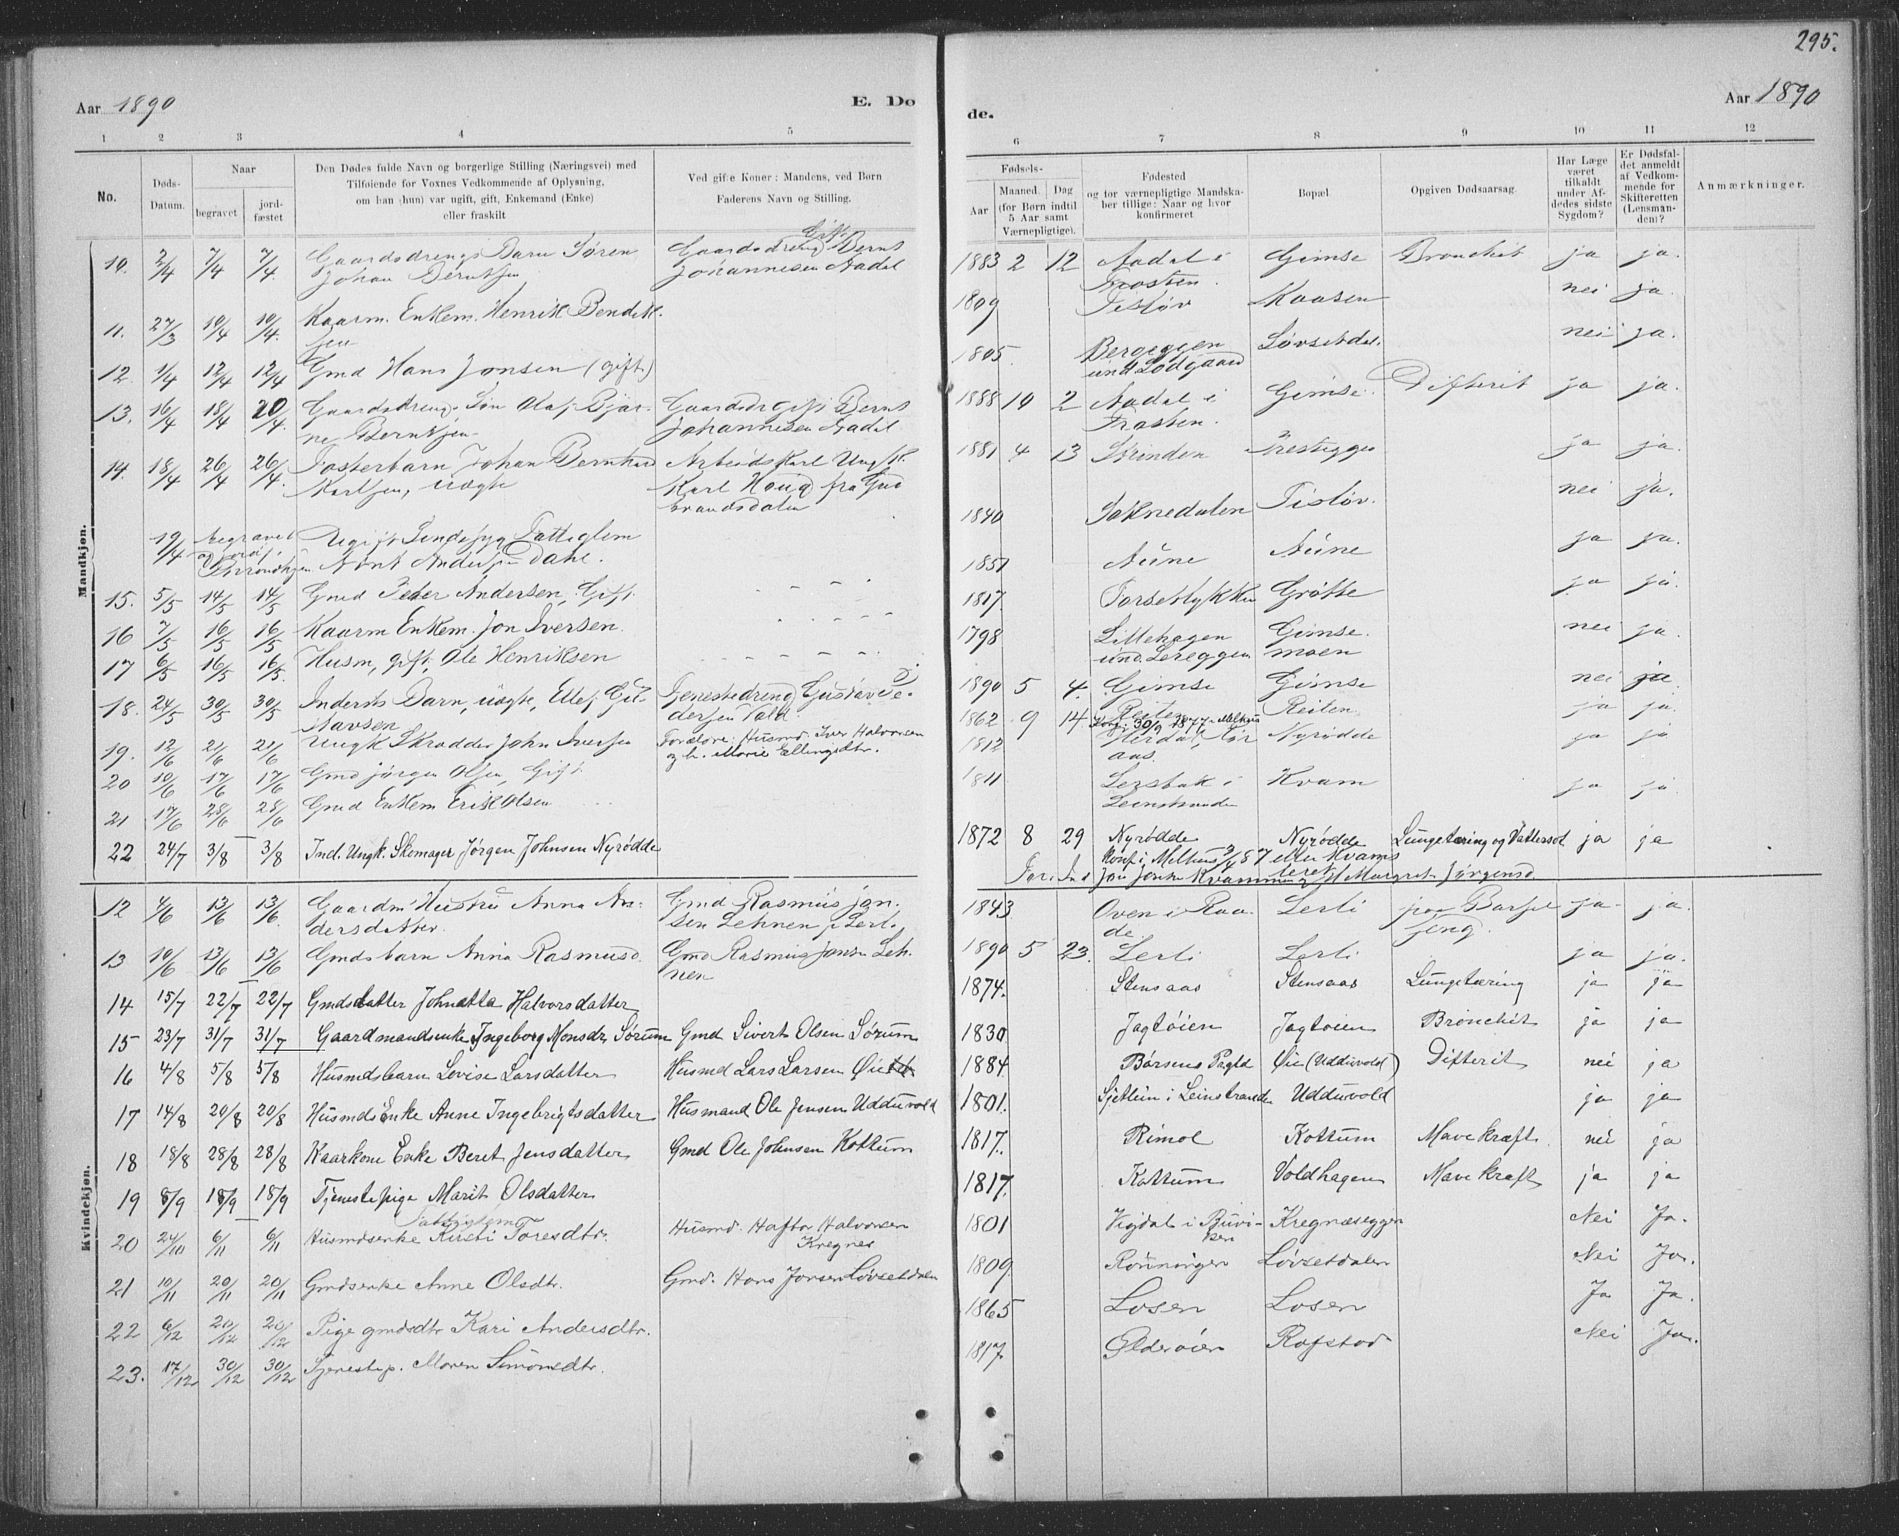 295.
Aar 1890
E. Dø
de.
Aar 1890
1 2 3 4 5
6 7 8 9 10 11 12
No.
Døds-Datum.
Naar
begravet
jord-fæstet
Den Dødes fulde Navn og borgerlige Stilling (Næringsvei) med
Tilføiende for Voxnes Vedkommende af Oplysning,
om han (hun) var ugift, gift, Enkemand (Enke)
eller fraskilt
Ved gifte Koner: Mandens, ved Børn
Faderens Navn og Stilling.
Fødsels-
Aar
Maaned. Dag
(for Børn indtil
5 Aar samt
Værnepligtige).
Fødested
og for værnepligtige Mandska-
ber tillige: Naar og hvor
konfirmeret
Bopæl
Opgiven Dødsaarsag.
Har Læge
været
tilkaldt
under Af-
dødes sidste
Sygdom?
Er Dødsfal-
det anmeldt
af Vedkom-
mende for
Skifteretten
(Lensman-
den)?
Anmærkninger.
Mandkjøn.
10. 2/4 7/4 7/4. Gaardsdrengs Barn Søren Gaardsdreng Gift Bernt 1883 2 12 Aadal i Gimse Bronchit ja ja.
Johan Berntsen Johannesen Aadal Frosten.
11. 27/3 10/4 10/4. Kaarm. Enkem. Henrik Bendik- 1809 Tisløv Kaasen nei ja.
sen
12. 1/4 12/4 12/4 Gmd Hans Jonsen (gift) 1805. Bergeggen Løvsetdal. nei ja.
und. Lodgaard
13. 16/4 18/4 20/4. Gaardsdreng Søn Olaf Bjar- Gaardsdr gift Bernt 1888 10 2 Aadal i Gimse. Difterit ja ja.
ne Berntsen Johannesen Aadal Frosten.
14. 18/4 26/4 26/4. Fosterbarn Johan Bernhard Arbeidskarl Ungk. 1881 4 13 Strinden ja ja.
Karlsen, uægte Karl Houg fra Gud
brandsdalen
19/4 begravet Ugift Sindssyg Fattiglem 1840 Soknedalen Tisløv. nei ja.
Anders Dahl.
15. 5/5 14/5 14/5 Gmd Peder Andersen, Gift. 1851 Aune Aune ja ja.
16 7/5 16/5 16/5 Kaarm Enkem. Jon Iversen. 1817. Grøtte ja ja
17 6/5 16/5 16/5. Husm, gift, Ole Henriksen 1798 Littlehagen Gimse nei ja.
und. Lereggen moen
18. 24/5 30/5 30/5 Inderst Barn, uægte, Ellef Gu- Tjenestedreng Gustav Pe- 1890 5 4. Gimse Gimse nei ja
stavsen dersen Vold.
19. 12/6 21/6 21/6 Ungk Skrædder John Iversen Forældre: Husmd. Iver Halvorsen 1862 9 14 Reiten Reiten ja ja.
og h. Marie Ellingsdtr. Konf. 30/9 1877 Melhus
20 10/6 17/6 17/6 Gmd Jørgen Olsen, Gift. 1812 Nyrødde ja ja
aas.
21 17/6 28/6 28/6 Gmd Enkem Erik Olsen 1811 i Kvam ja ja.
Leinstranden
22 24/7 3/8 3/8 Ind. Ungk. Skomager Jørgen Johnsen Nyrødde 1872 8 29 Nyrødde Nyrødde Lungetæring og Vattersot ja ja
Konf i Melhus
Kvammen Margret Jørgensd
Kvindekjøn.
12 4/6 13/6 13/6. Gaardm. Hustru Anna An- Gmd Rasmus Jon- 1843 Oven i Raa- Lerli paa Barsel- ja ja.
dersdatter sen Lehnen p. Lerl. de. seng.
13 10/6 13/6 13/6 Gmdsbarn Anna Rasmusd. Gmd Rasmus Jonsen Leh- 1890 5 23. Lerli Lerli ja ja.
nen
14 15/7 22/7 22/7 Gmdsdatter Johnetta Halvorsdatter 1874. Stensaas Stensaas Lungetæring ja ja
15 23/7 31/7 31/7 Gaardmandsenke Ingeborg Monsdr Sørum Gmd Sivert Olsen Sørum 1830 Jagtøien Jagtøien Bronchit ja ja
16 4/8 5/8 5/8 Husmdsbarn Lovise Larsdatter Husmd Lars Larsen Øie 1884 Børsens Pregld Øie (Udduvold) Difterit nei ja
17 14/8 20/8 20/8 Husmds Enke Anne Ingebrigtsdatter Husmand Ole Jensen Udduvold 1801. Sjetlein i Leinstranden Udduvold ja ja
18 18/8 28/8 28/8 Kaarkone Enke Beret Jensdatter Gmd Ole Johnsen Kottum 1817. Rimol Kottum Mavekræft nei ja
19 8/9 18/9 18/9 Tjenestepige Marit Olsdatter 1817. Kottum Voldhagen Mavekræft ja ja
20 24/10 6/11 6/11 Husmdsenke Fattiglem Kirsti Toresdtr. Husmd. Haftor Halvorsen 1801 Vigdal i Buvi- Kregnæseggen Nei Ja.
Kregnes ken
21 10/11 20/11 20/11 Gmdsenke Anne Olsdtr. Gmd. Hans Jonsen Løvsetdalen 1809. Rønningen Løvsetdalen Nei Ja.
22 6/12 20/12 20/12 Pige gmdsdtr Kari Andersdtr. 1865 Losen Losen Ja Ja.
23. 17/12 30/12 30/12 Tjenestep. Maren Simonsdtr. 1817. Ølderøien Rofstad Nei Ja.